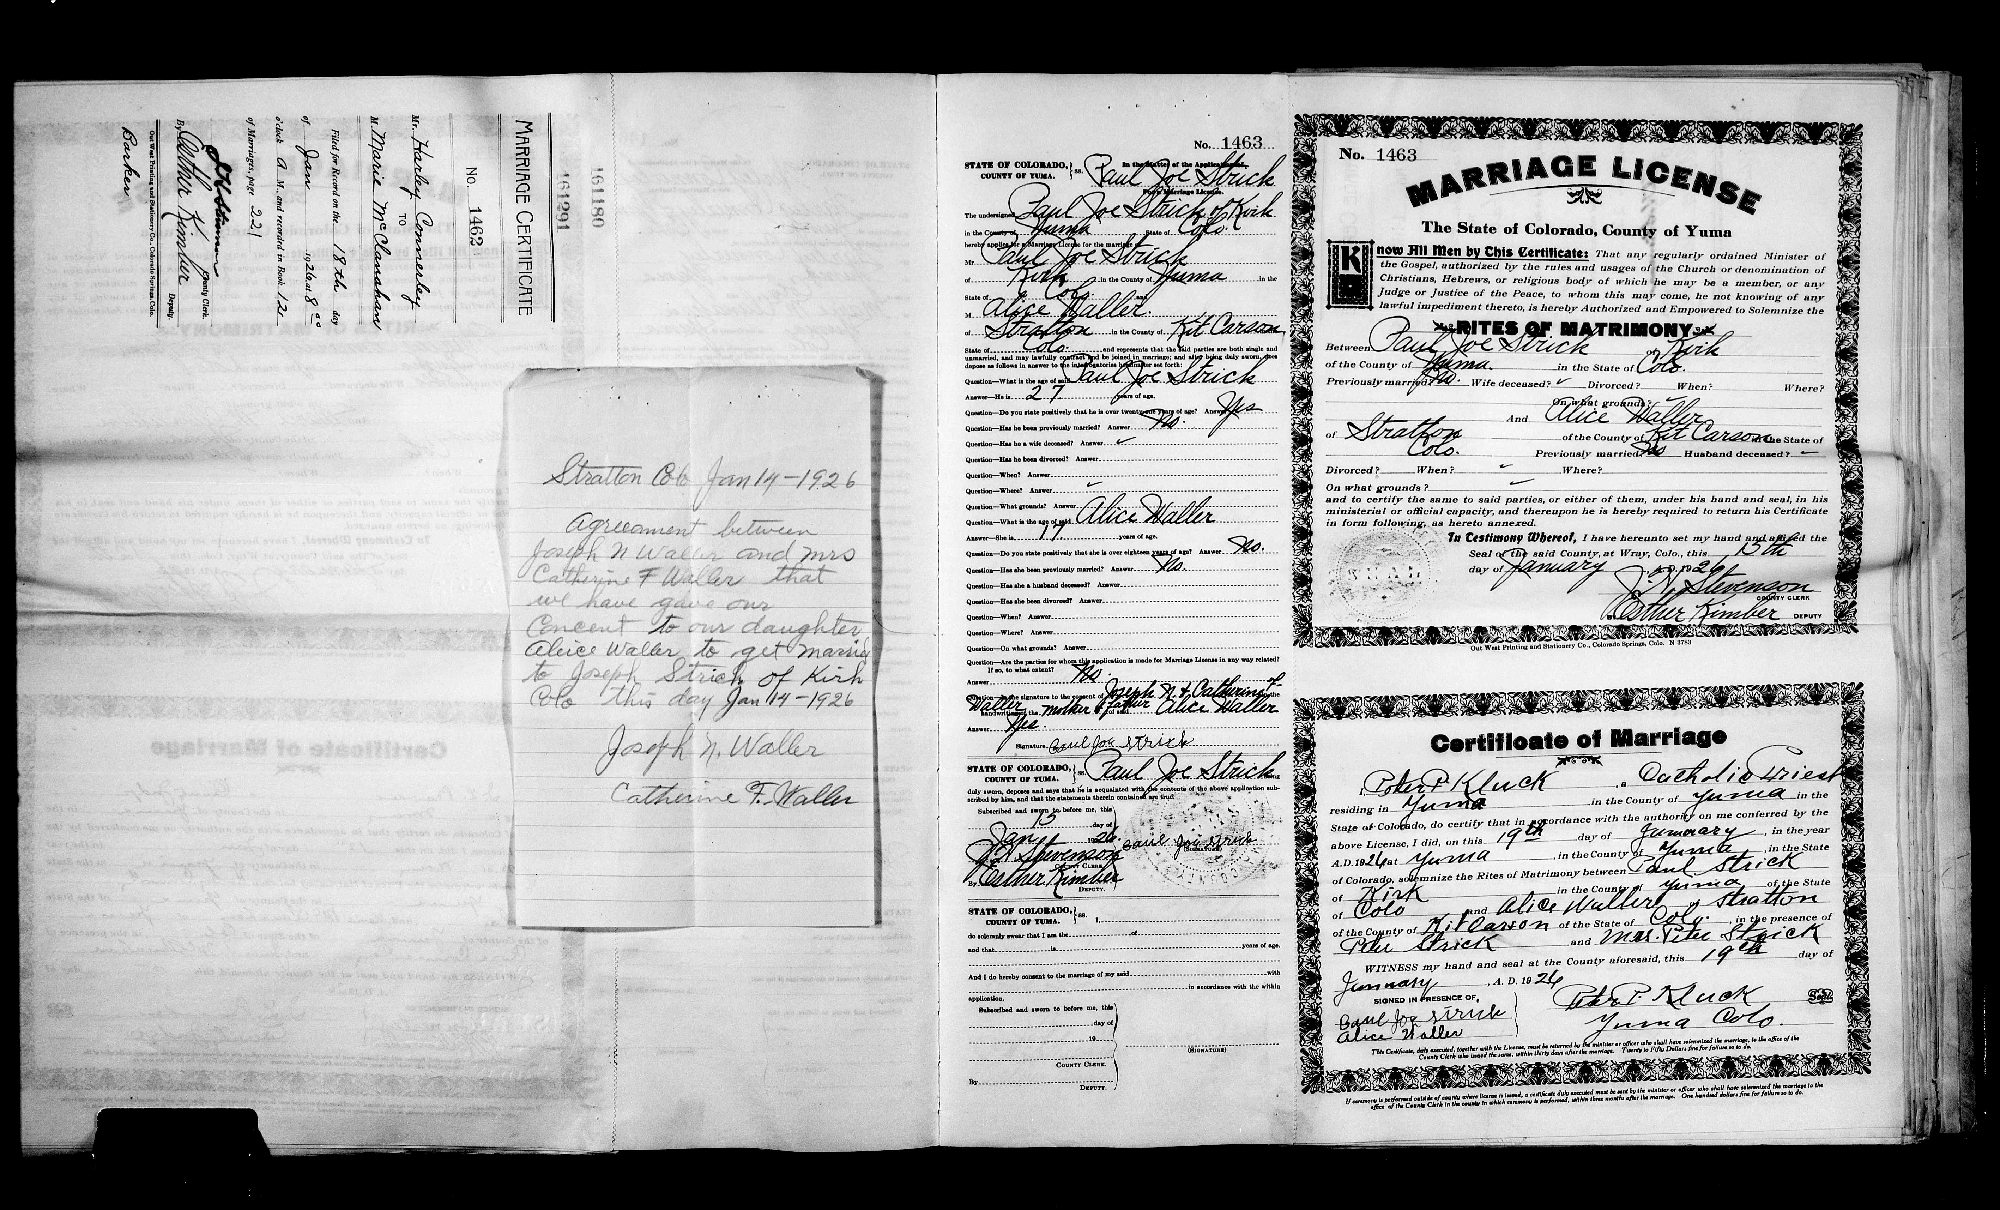 161180
161291
MARRIAGE CERTIFICATE
No. 1462
Mr. Harley Connerley
TO
M Marie McClanahan
Filed for Record on the 18th day
of Jan 1926 at 8 00
o'clock A M. and recorded in Book 12
of Marriages, page 221
County Clerk.
By Esther Kimber
Deputy.
Out West Printing and Stationery Co., Colorado Springs, Colo.
Barker
Stratton Colo Jan 14-1926
Agreeoment between
Joseph N Waller and Mrs
Catherine F Waller that
we have gave our
Concent to our daughter
Aleice Waller to get married
to Joseph Strich of Kirk
Colo this day Jan 14-1926
Joseph N. Waller
Catherine F. Waller
No. 1463
STATE OF COLORADO,
COUNTY OF YUMA.
} ss.
In the Matter of the Application of
Paul Joe Strick
For a Marriage License.
The undersigned Paul Joe Strick of Kirk
in the County of Yuma State of Colo.
hereby applies for a Marriage License for the marriage of
Mr Paul Joe Strick
of Kirk in the County of Yuma in the
State of Colo. and
M Alice Waller.
of Stratton in the County of Kit Carson
State of Colo. and represents that the said parties are both single and
unmarried, and may lawfully contract and be joined in marriage; and after being duly sworn, does
depose as follows in answer to the interrogatories hereinafter set forth:
Question—What is the age of said Paul Joe Strick
Answer—He is 27 years of age.
Question—Do you state positively that he is over twenty-one years of age? Answer Yes
Question—Has he been previously married? Answer No.
Question—Has he a wife deceased? Answer ✓
Question—Has he been divorced? Answer
Question—When? Answer
Question—Where? Answer ✓
Question—What grounds? Answer
Question—What is the age of said Alice Waller
Answer—She is 17 years of age.
Question—Do you state positively that she is over eighteen years of age? Answer No.
Question—Has she been previously married? Answer No.
Question—Has she a husband deceased? Answer
Question—Has she been divorced? Answer
Question—When? Answer
Question—Where? Answer
Question—On what grounds? Answer
Question—Are the parties for whom this application is made for Marriage License in any way related?
If so, to what extent?
Answer No.
Question—Is the signature to the consent of Joseph N. & Catherine F. the
Waller handwriting of the mother & father of said Alice Waller
Answer Yes
Signature Paul Joe Strick
STATE OF COLORADO,
COUNTY OF YUMA.
} ss. Paul Joe Strick
duly sworn, deposes and says that he is acquainted with the contents of the above application sub-
scribed by him, and that the statements therein contained are true.
Subscribed and sworn to before me, this
15 day of
Jany 1926
J. N. Stevenson Paul Joe Strick
(SIGNATURE)
COUNTY CLERK.
By Esther Kimber
DEPUTY.
STATE OF COLORADO,
COUNTY OF YUMA.
} ss. I,
do solemnly swear that I am the of
and that is years of age.
And I do hereby consent to the marriage of my said with
in accordance with the within
application.
Subscribed and sworn to before me, this
day of
19
COUNTY CLERK.
(SIGNATURE)
By
DEPUTY.
No. 1463
MARRIAGE LICENSE
The State of Colorado, County of Yuma
Know All Men by This Certificate: That any regularly ordained Minister of
the Gospel, authorized by the rules and usages of the Church or denomination of
Christians, Hebrews, or religious body of which he may be a member, or any
Judge or Justice of the Peace, to whom this may come, he not knowing of any
lawful impediment thereto, is hereby Authorized and Empowered to Solemnize the
RITES OF MATRIMONY
Between Paul Joe Strick of Kirk
of the County of Yuma in the State of Colo.
Previously married? No. Wife deceased? ✓ Divorced? When? Where?
On what grounds? ✓
And Alice Waller
of Stratton of the County of Kit Carson in the State of
Colo. Previously married No Husband deceased? ✓
Divorced? When? ✓ Where?
On what grounds? ✓
and to certify the same to said parties, or either of them, under his hand and seal, in his
ministerial or official capacity, and thereupon he is hereby required to return his Certificate
in form following, as hereto annexed.
In Testimony Whereof, I have hereunto set my hand and affixed the
Seal of the said County, at Wray, Colo., this 15th
day of January A. D. 1926
J. N. Stevenson
COUNTY CLERK
By Esther Kimber DEPUTY
Out West Printing and Stationery Co., Colorado Springs, Colo. N 3783
Certificate of Marriage
I, Peter P. Kluck, a Catholic Priest
residing in Yuma in the County of Yuma in the
State of Colorado, do certify that in accordance with the authority on me conferred by the
above License, I did, on this 19th day of Junuary, in the year
A. D. 1926 at Yuma, in the County of Yuma, in the State
of Colorado, solemnize the Rites of Matrimony between Paul Strick
of Kirk in the County of Yuma of the State
of Colo and Alice Waller of Stratton
of the County of Kit Carson of the State of Colo. in the presence of
Pete Strick and Mrs. Pete Strick
WITNESS my hand and seal at the County aforesaid, this 19th day of
Junuary, A. D. 1926
SIGNED IN PRESENCE OF,
Paul Joe Strick
Alice Waller
Peter P. Kluck Seal
Yuma Colo.
This Certificate, duly executed, together with the License, must be returned by the minister or officer who shall have solemnized the marriage, to the office of the
County Clerk who issued the same, within thirty days after the marriage. Twenty to Fifty Dollars fine for failure so to do.
If ceremony is performed outside of county where license is issued, a certificate duly executed must be sent by the minister or officer who shall have solemnized the marriage to the
office of the County Clerk in the county in which ceremony is performed, within three months after the marriage. One hundred dollars fine for failure so to do.